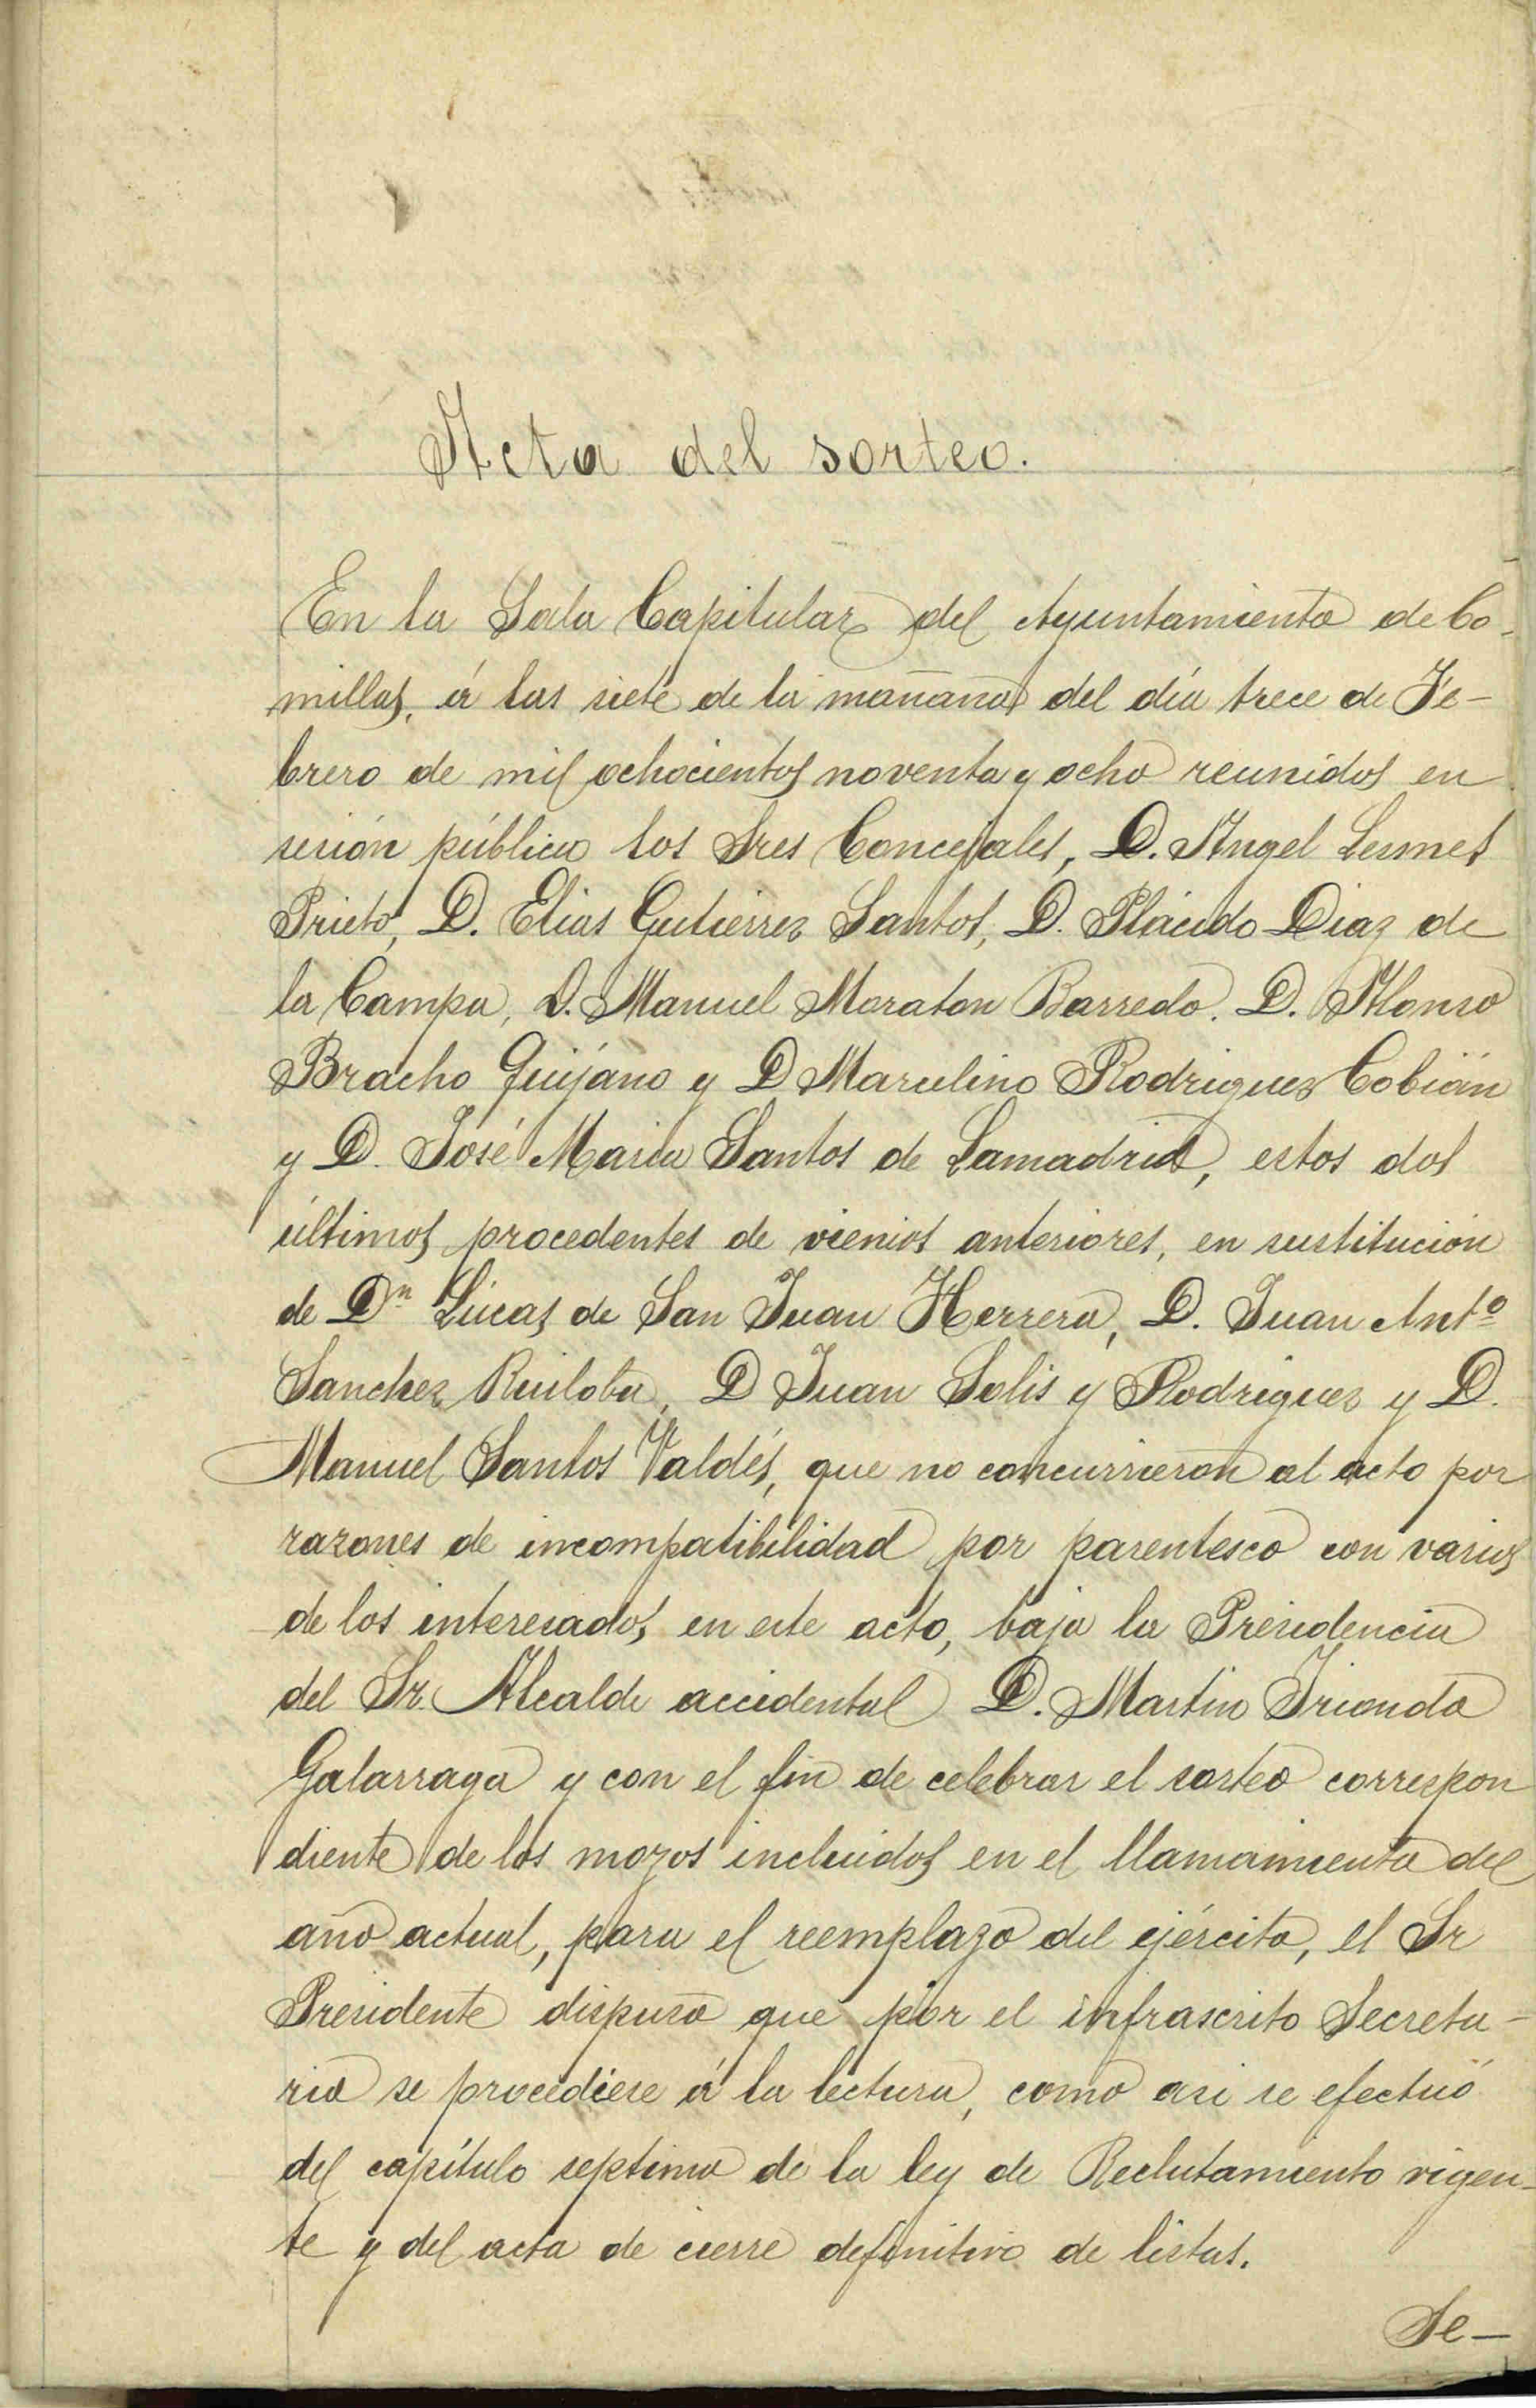 Acta del sorteo.
En la Sala Capitular del Ayuntamiento de Co-
millas, á las siete de la mañana del día trece de Fe-
brero de mil ochocientos noventa y ocho reunidos en
sesión pública los Sres Concejales, D. Angel Lesmes
Prieto, D. Elias Gutierrez Santos, D. Plácido Diaz de
la Campa, D. Manuel Moraton Barredo. D. Alonso
Bracho Quijano y D Marcelino Rodriguez Cobián
y D. José Maria Santos de Lamadrid, estos dos
últimos procedentes de vienios anteriores, en sustitución
de Dn Lúcas de San Juan Herrera, D. Juan Antº
Sanchez Ruiloba, D Juan Solis y Rodriguez y D.
Manuel Santos Valdés, que no concurrieron al acto por
razones de incompatibilidad por parentesco con varios
de los interesados en este acto, bajo la Presidencia
del Sr. Alcalde accidental D. Martin Iriondo
Galarraga y con el fin de celebrar el sorteo correspon
diente de los mozos incluidos en el llamamiento del
año actual, para el reemplazo del ejército, el Sr
Presidente dispuso que por el infrascrito Secreta-
rio se procediese á la lectura, como asi se efectuó
del capítulo septimo de la ley de Reclutamiento vigen-
te y del acta de cierre definitivo de listas.
Se-